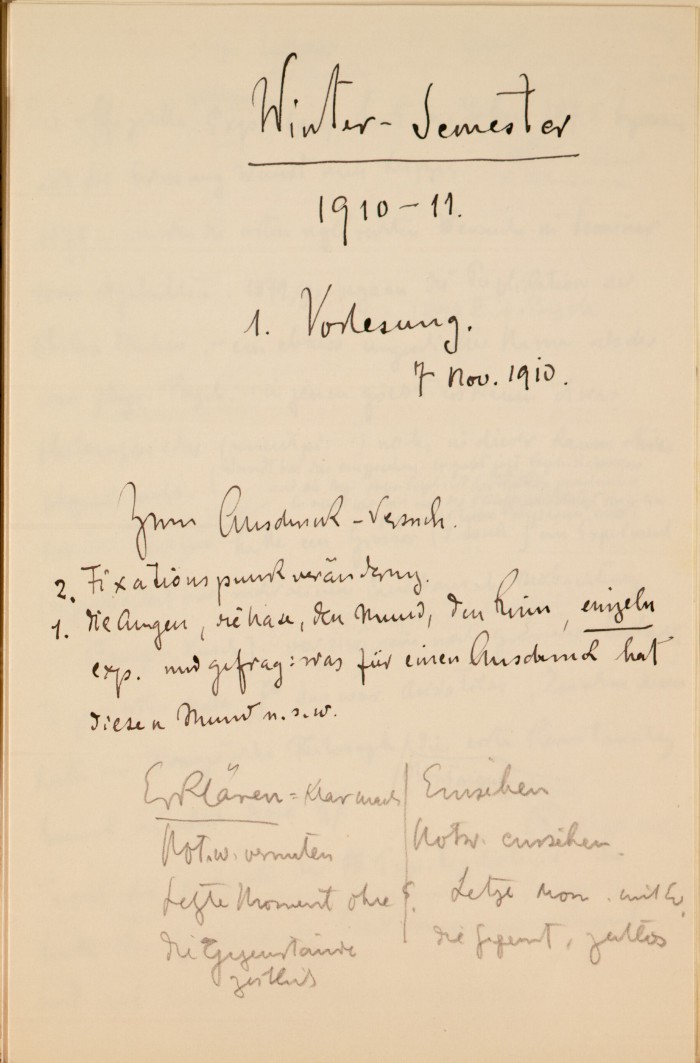 Winter-Semester
1910-11.
1. Vorlesung.
7 Nov. 1910.
Zum Ausdruck-Versuch.
2. Fixationspunkveränderung.
1. die Augen, die Nase, den Mund, den Kinn, einzeln
exp. und gefrag: was für einen Ausdruck hat
diesen Mund u.s.w.
Erklären = Klar mach
Notw. vermuten
Letzte Moment ohne E.
die Gegenstände
zeitlich
Einsehen
Notw. einsehen.
Letze Mom. mit E.
die Gegenst, zeitlos